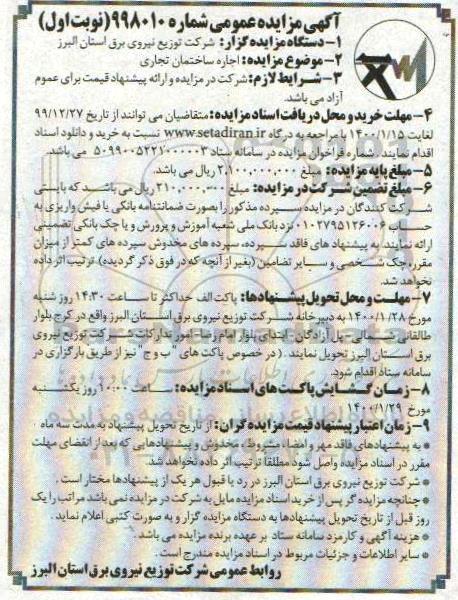 آگهی مزایده عمومی شماره ۹۹۸۰۱۰ (نوبت اول)
۱- دستگاه مزایده گزار: شرکت توزیع نیروی برق استان البرز
۲- موضوع مزایده: اجاره ساختمان تجاری
۳- شرایط لازم: شرکت در مزایده و ارائه پیشنهاد قیمت برای عموم
آزاد می باشد.
۴- مهلت خرید و محل دریافت اسناد مزایده: متقاضیان می توانند از تاریخ ۹۹/۱۲/۲۷
لغایت ۱۴۰۰/۱/۱۵ با مراجعه به درگاه www.setadiran.ir نسبت به خرید و دانلود اسناد
اقدام نمایند. شماره فراخوان مزایده در سامانه ستاد ۵۰۹۹۰۰۵۲۲۱۰۰۰۰۰۳ می باشد.
۵- مبلغ پایه مزایده: مبلغ ۲,۱۰۰,۰۰۰,۰۰۰ ریال می باشد.
۶- مبلغ تضمین شرکت در مزایده: مبلغ ۲۱۰,۰۰۰,۰۰۰ ریال می باشد که بایستی
شرکت کنندگان در مزایده سپرده مذکور را بصورت ضمانتنامه بانکی یا فیش واریزی به
حساب ۰۱۰۲۷۹۵۱۲۶۰۰۶ نزد بانک ملی شعبه آموزش و پرورش و یا چک بانکی تضمینی
ارائه نمایند. به پیشنهاد های فاقد سپرده، سپرده های مخدوش سپرده های کمتر از میزان
مقرر، چک شخصی و سایر تضامین (بغیر از آنچه که در فوق ذکر گردیده) ترتیب اثر داده
نخواهد شد.
۷- مهلت و محل تحویل پیشنهادها: پاکت الف حداکثر تا ساعت ۱۴:۳۰ روز شنبه
مورخ ۱۴۰۰/۱/۲۸ به دبیرخانه شرکت توزیع نیروی برق استان البرز واقع در کرج بلوار
طالقانی شمالی پل آزادگان ابتدای بلوار امام رضا امور تدارکات شرکت توزیع نیروی
برق استان البرز تحویل نمایند. (در خصوص پاکت های "ب و ج" نیز از طریق بارگزاری در
سامانه ستاد اقدام شود.
۸- زمان گشایش پاکت های اسناد مزایده: ساعت ۱۰:۰۰ روز یکشنبه
مورخ ۱۴۰۰/۱/۲۹
۹- زمان اعتبار پیشنهاد قیمت مزایده گران: از تاریخ تحویل پیشنهاد به مدت سه ماه.
* به پیشنهادهای فاقد مهر و امضاء، مشروط، مخدوش و پیشنهادهایی که بعد از انقضای مهلت
مقرر در اسناد مزایده واصل شود مطلقا ترتیب اثر داده نخواهد شد.
* شرکت توزیع نیروی برق استان البرز در رد یا قبول هر یک از پیشنهادها مختار است.
* چنانچه مزایده گر پس از خرید اسناد مزایده مایل به شرکت در مزایده نمی باشد مراتب را یک
روز قبل از تاریخ تحویل پیشنهادها به دستگاه مزایده گزار و به صورت کتبی اعلام نماید.
* هزینه آگهی و کارمزد سامانه ستاد بر عهده برنده مزایده می باشد.
* سایر اطلاعات و جزئیات مربوط در اسناد مزایده مندرج است.
روابط عمومی شرکت توزیع نیروی برق استان البرز